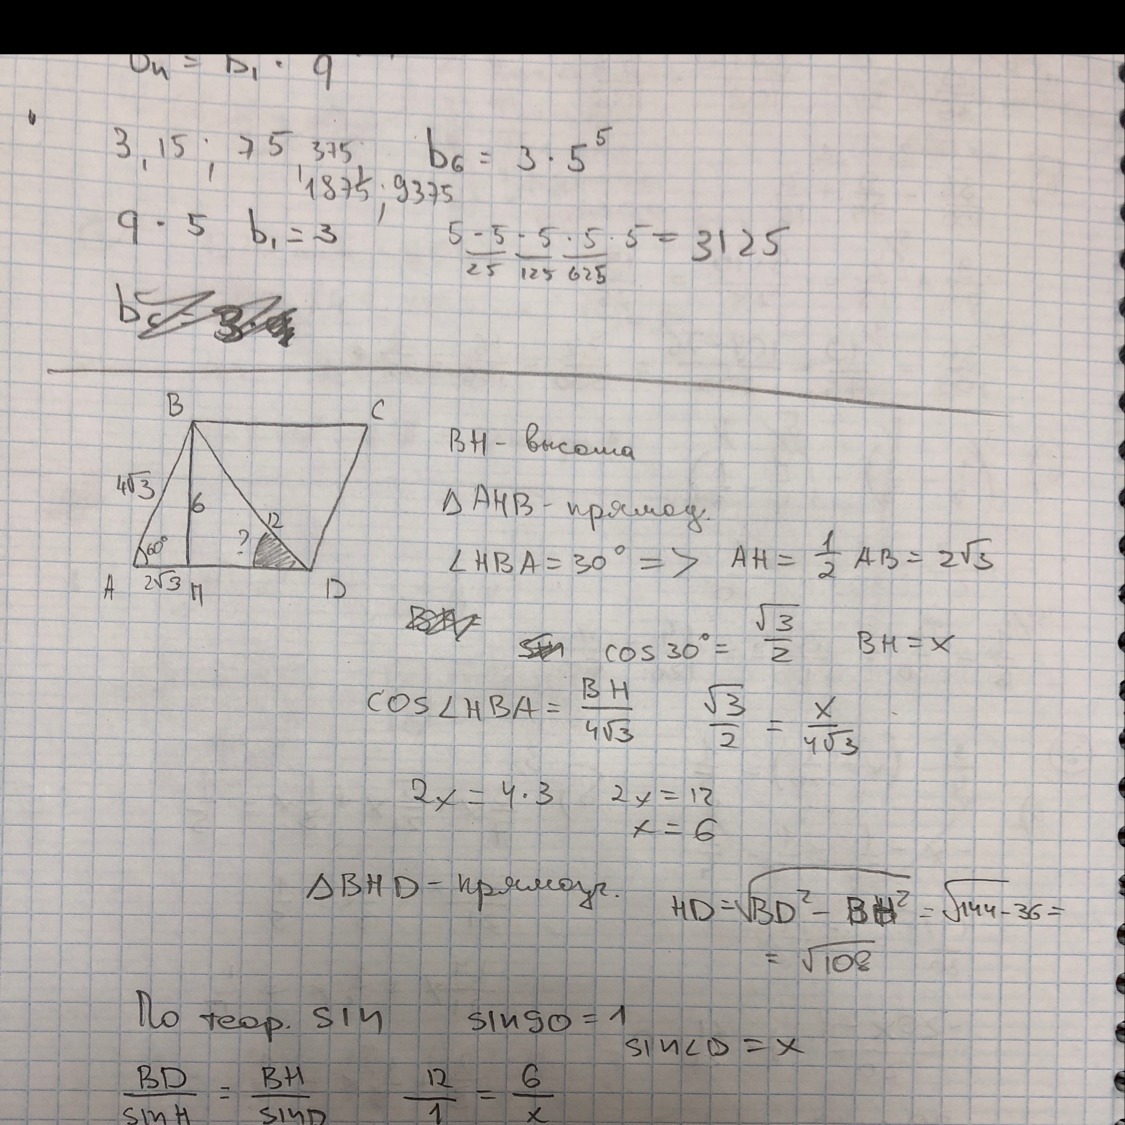 bn = b1 · q
3, 15; 75, 375, b6 = 3 · 5⁵
1875; 9375
q · 5 b1 = 3 5 · 5 · 5 · 5 · 5 = 3125
25 125 625
B C
BH - высота
4√3 6
ΔAHB - прямоуг.
12 ?
60°
∠HBA = 30° => AH = 1/2 AB = 2√3
A 2√3 H D
cos 30° = √3/2 BH = x
cos∠HBA = BH/4√3 √3/2 = x/4√3
2x = 4·3 2x = 12
x = 6
ΔBHD - прямоуг. HD = √BD² - BH² = √144-36 =
= √108
По теор. sin sin90 = 1
sin∠D = x
BD/sinH = BH/sinD 12/1 = 6/x